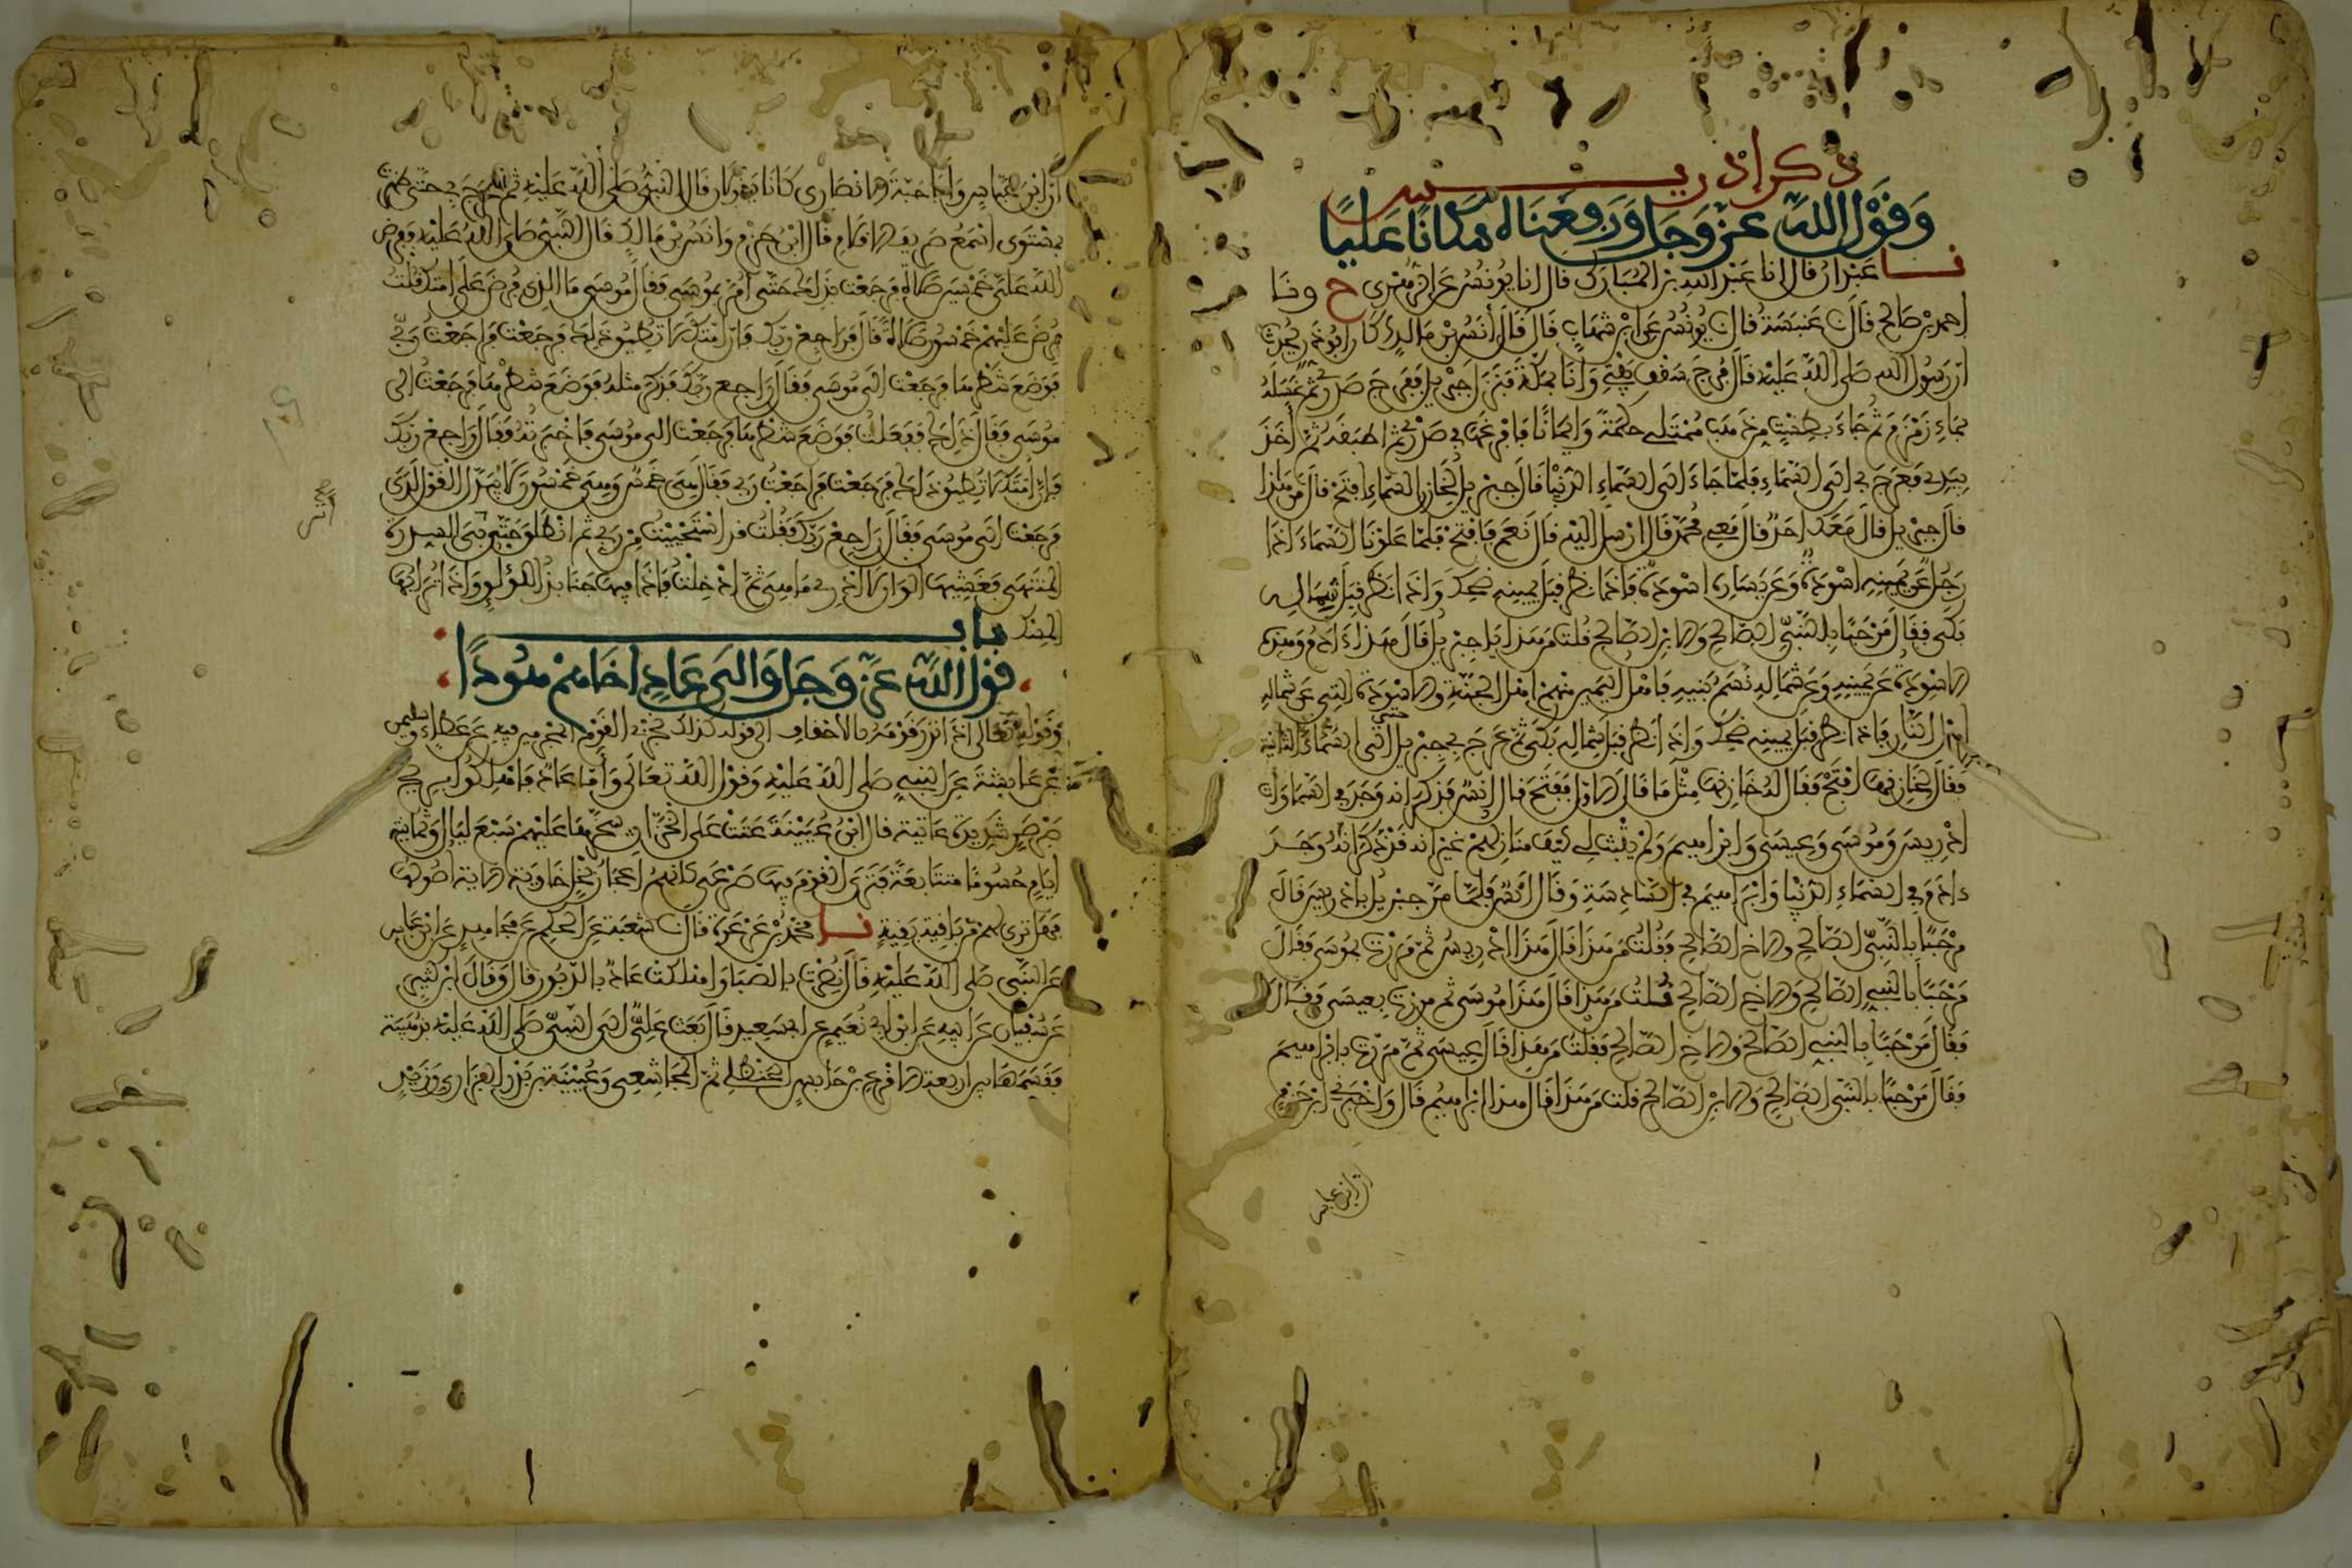 ذكر إدريس
وَقَوْلُ اللَّهِ عَزَّ وَجَلَّ وَرَفَعْنَاهُ مَكَانًا عَلِيًّا
نا عبدان قال انا عبد الله بن المبارك قال انا يونس عن الزهري ح ونا
احمد بن صالح قال نا عنبسة قال نا يونس عن ابن شهاب قال قال أنس بن مالك كان ابو ذر يحدث
ان رسول الله صلى الله عليه قال فرج سقف بيتي وانا بمكة فنزل جبريل ففرج صدري ثم غسله
بماء زمزم ثم جاء بطست من ذهب ممتلئ حكمة وايمانا فافرغها في صدري ثم اطبقه ثم أخذ
بيدي فعرج بي الى السماء فلما جاء الى السماء الدنيا قال جبريل لخازن السماء افتح قال من هذا
قال جبريل قال معك احد قال معي محمد قال ارسل اليه قال نعم فافتح فلما علونا السماء اذا
رجل عن يمينه اسودة وعن يساره اسودة فاذا نظر قبل يمينه ضحك واذا نظر قبل شماله
بكى فقال مرحبا بالنبي الصالح والابن الصالح قلت من هذا يا جبريل قال هذا آدم وهذه
الاسودة عن يمينه وعن شماله نسم بنيه فاهل اليمين منهم اهل الجنة والاسودة التي عن شماله
اهل النار فاذا نظر قبل يمينه ضحك واذا نظر قبل شماله بكى ثم عرج بي جبريل حتى اتى السماء الثانية
فقال لخازنها افتح فقال له خازنها مثل ما قال الاول ففتح قال انس فذكر انه وجد في السماوات
ادريس وموسى وعيسى وابراهيم ولم يثبت لي كيف منازلهم غير انه قد ذكر انه وجد
ءادم في السماء الدنيا وابراهيم في السادسة وقال انس فلما مر جبريل بادريس قال
مرحبا بالنبي الصالح والاخ الصالح فقلت من هذا قال هذا ادريس ثم مررت بموسى فقال
مرحبا بالنبي الصالح والاخ الصالح قلت من هذا قال هذا موسى ثم مررت بعيسى فقال
فقال مرحبا بالنبي الصالح والاخ الصالح فقلت من هذا قال عيسى ثم مررت بابراهيم
فقال مرحبا بالنبي الصالح والابن الصالح قلت من هذا قال هذا ابراهيم قال واخبرني ابن حزم
ان ابن عباس
أن ابن عباس وأبا حبة الانصاري كانا يقولان قال النبي صلى الله عليه ثم عرج بي حتى ظهرت
بمستوى اسمع صريف الاقلام قال ابن حزم وانس بن مالك قال النبي صلى الله عليه ففرض
الله علي خمسين صلاة فرجعت بذلك حتى امر بموسى فقال موسى ما الذي فرض على امتك قلت
فرض عليهم خمسون صلاة قال فراجع ربك فان امتك لا تطيق ذلك فرجعت فراجعت ربي
فوضع شطرها فرجعت الى موسى فقال راجع ربك فذكر مثله فوضع شطرها فرجعت الى
موسى فقال ذلك ففعلت فوضع شطرها فرجعت الى موسى فاخبرته فقال راجع ربك
فان امتك لا تطيق ذلك فرجعت فراجعت ربي فقال هي خمس وهي خمسون لا يبدل القول لدي
فرجعت الى موسى فقال راجع ربك فقلت قد استحييت من ربي ثم انطلق حتى اتى السدرة
المنتهى فغشيها الوان لا ادري ما هي ثم ادخلت فاذا فيها جنابذ اللؤلؤ واذا ترابها
المسك
باب
قول الله عز وجل والى عاد اخاهم هودا
وقوله تعالى اذ انذر قومه بالاحقاف الى قوله كذلك نجزي القوم المجرمين فيه عن عطاء وسليمن
عن عايشة عن النبي صلى الله عليه وقول الله تعالى وأما عاد فاهلكوا بريح
صرصر شديدة عاتية قال ابن عيينة عتت على الخزان سخرها عليهم سبع ليال وثمانية
ايام حسوما متتابعة فترى القوم فيها صرعى كانهم اعجاز نخل خاوية الاية اصولها
فهل ترى لهم من باقية بقية نا محمد بن عرعرة قال نا شعبة عن الحكم عن مجاهد عن ابن عباس
عن النبي صلى الله عليه قال نصرت بالصبا واهلكت عاد بالدبور قال وقال ابن كثير
عن سفيان عن ابيه عن ابن ابي نعيم عن ابي سعيد قال بعث علي الى النبي صلى الله عليه بذهيبة
فقسمها بين اربعة الاقرع بن حابس الحنظلي ثم المجاشعي وعيينة بن بدر الفزاري وزيد